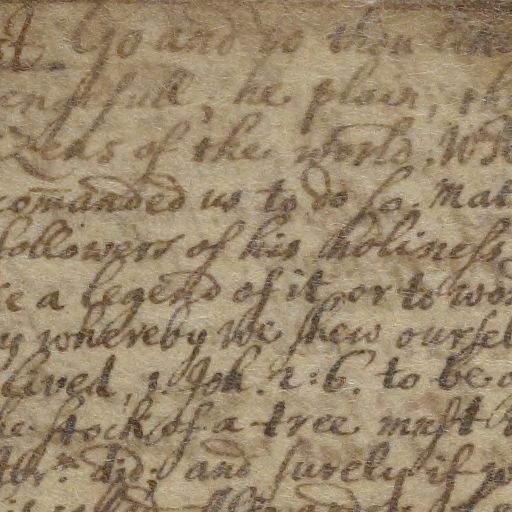 Go and do thou like
full, he plain, th
of the world. Wh
comanded us to do so. Mat
followers of his holiness
e a legend of it, or to wo
y whereby we shew oursel
lived, 1. Joh. 2:6. to be
stock of a tree must
did; and surely if